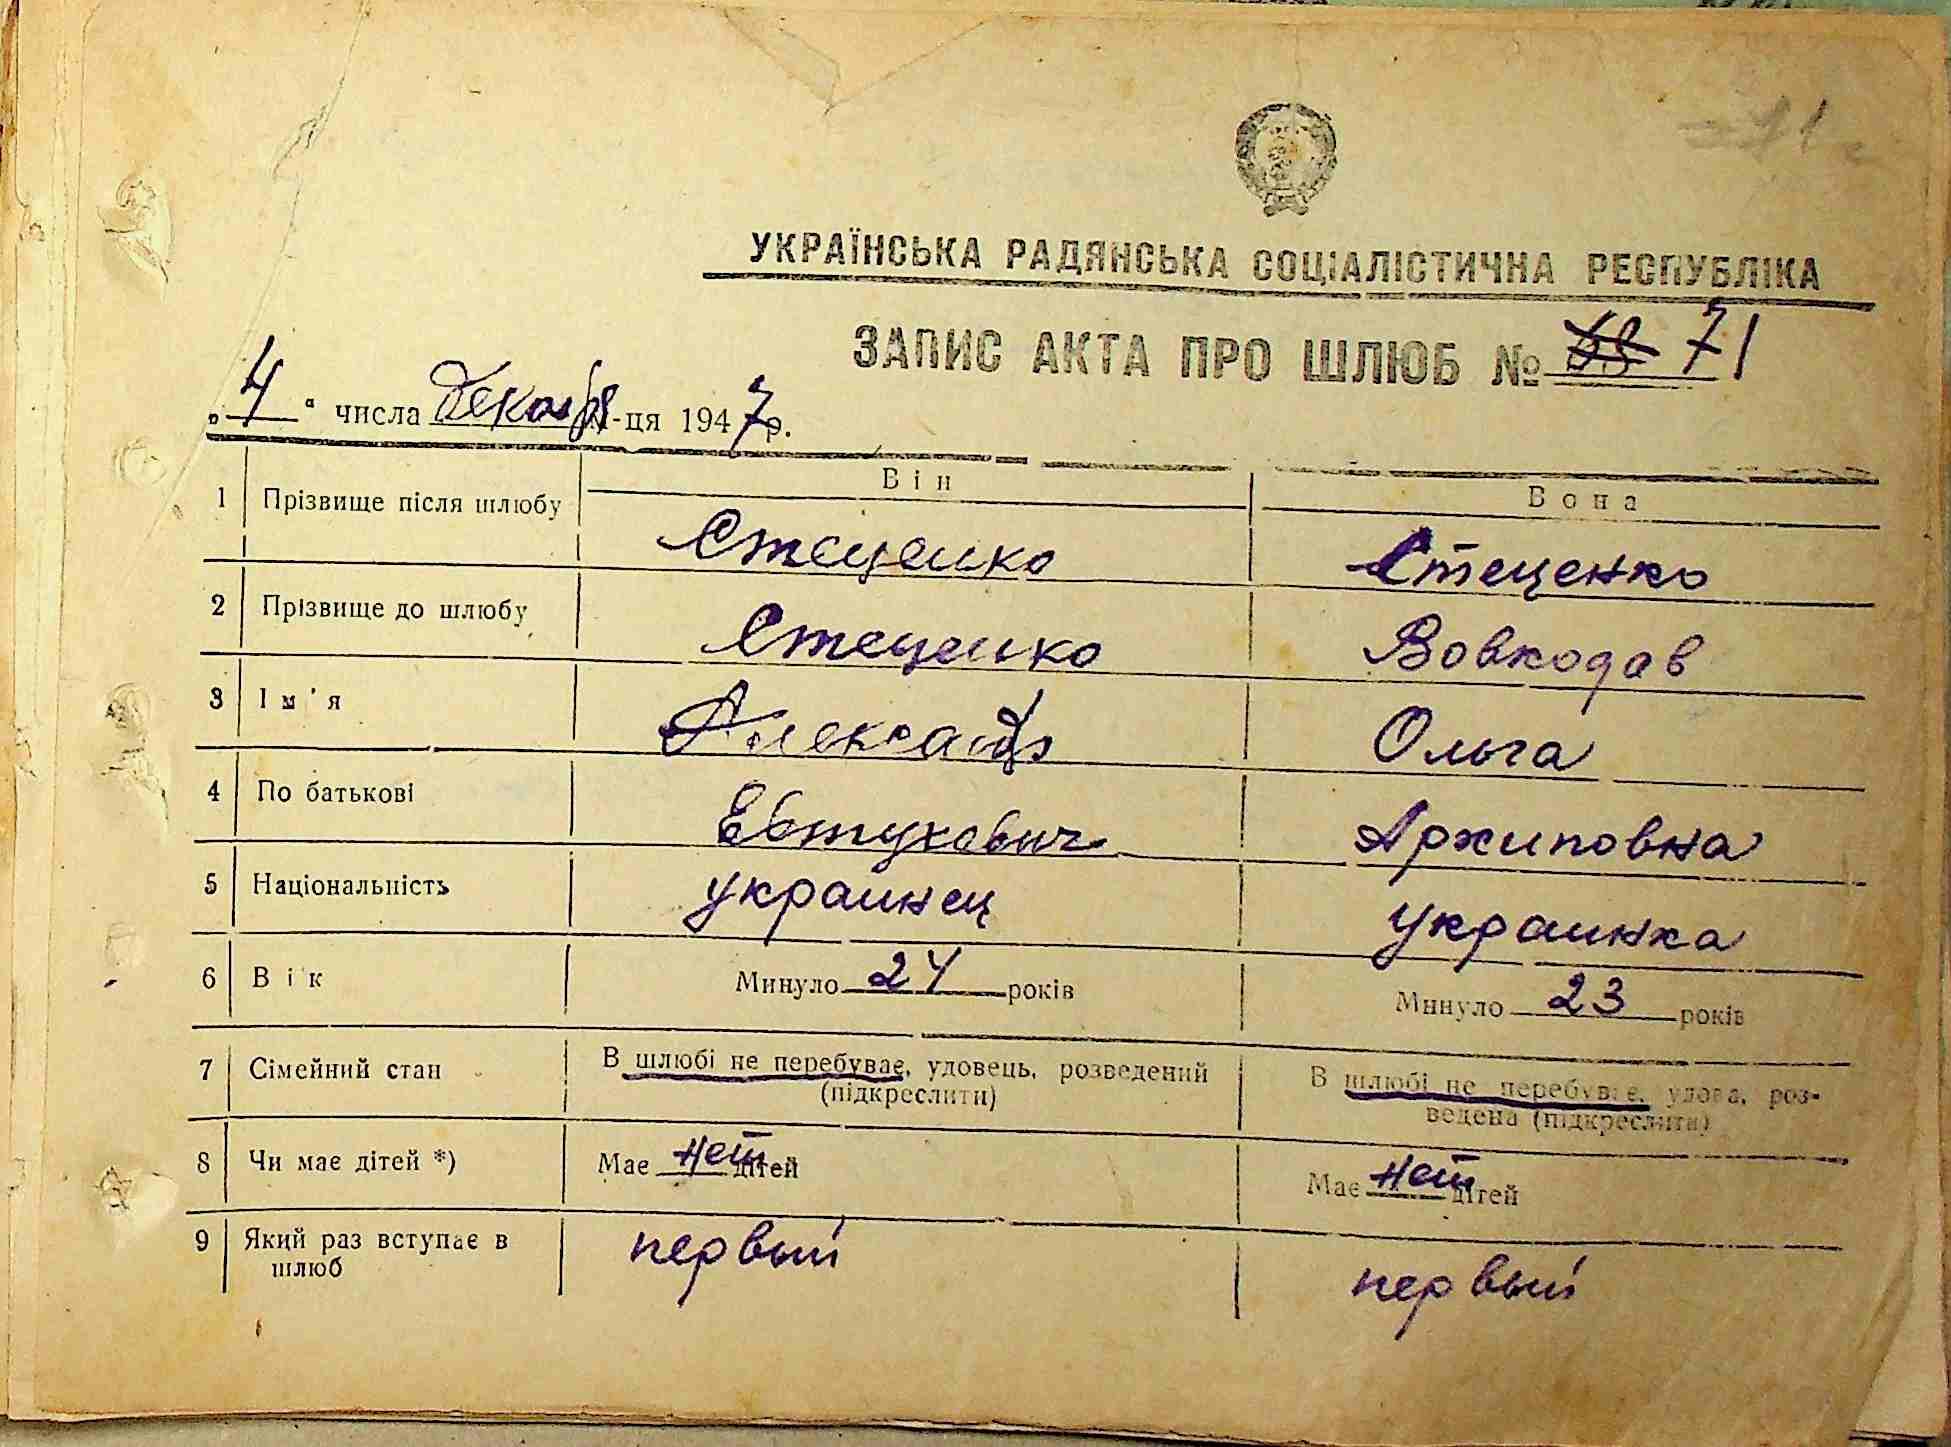 УКРАЇНСЬКА РАДЯНСЬКА СОЦІАЛІСТИЧНА РЕСПУБЛІКА
ЗАПИС АКТА ПРО ШЛЮБ № 71
„4“ числа декабря м-ця 1947 р.
Він Вона
1 Прізвище після шлюбу Стеценко Стеценко
2 Прізвище до шлюбу Стеценко Вовкодав
3 Ім'я Александр Ольга
4 По батькові Евтухович Архиповна
5 Національність украинец украинка
6 Вік Минуло 24 років Минуло 23 років
7 Сімейний стан В шлюбі не перебуває, удовець, розведений В шлюбі не перебуває, удова, роз-
(підкреслити) ведена (підкреслити)
8 Чи має дітей *) Має нет дітей Має нет дітей
9 Який раз вступає в первый первый
шлюб